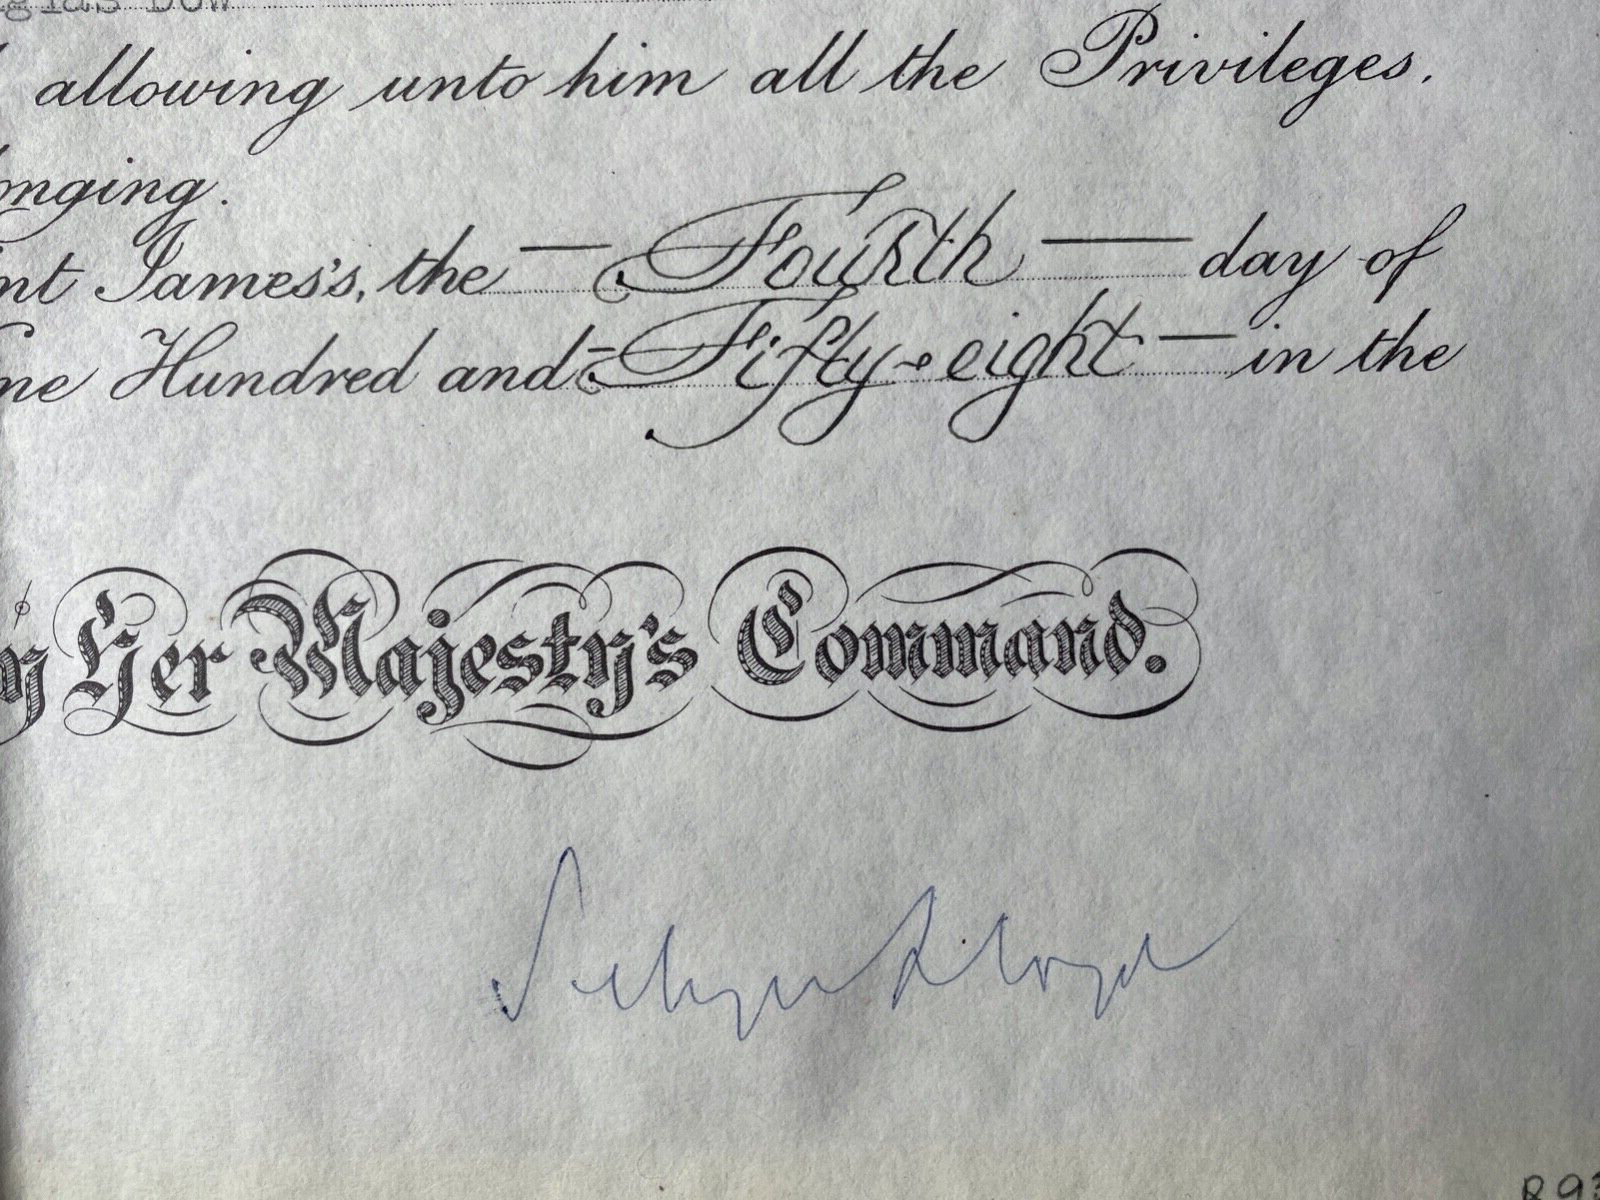 Dow
allowing unto him all the Privileges.
onging.
nt James's, the — Fourth — day of
ne Hundred and - Fifty-eight — in the
y Her Majesty's Command.
Selwyn Lloyd
893